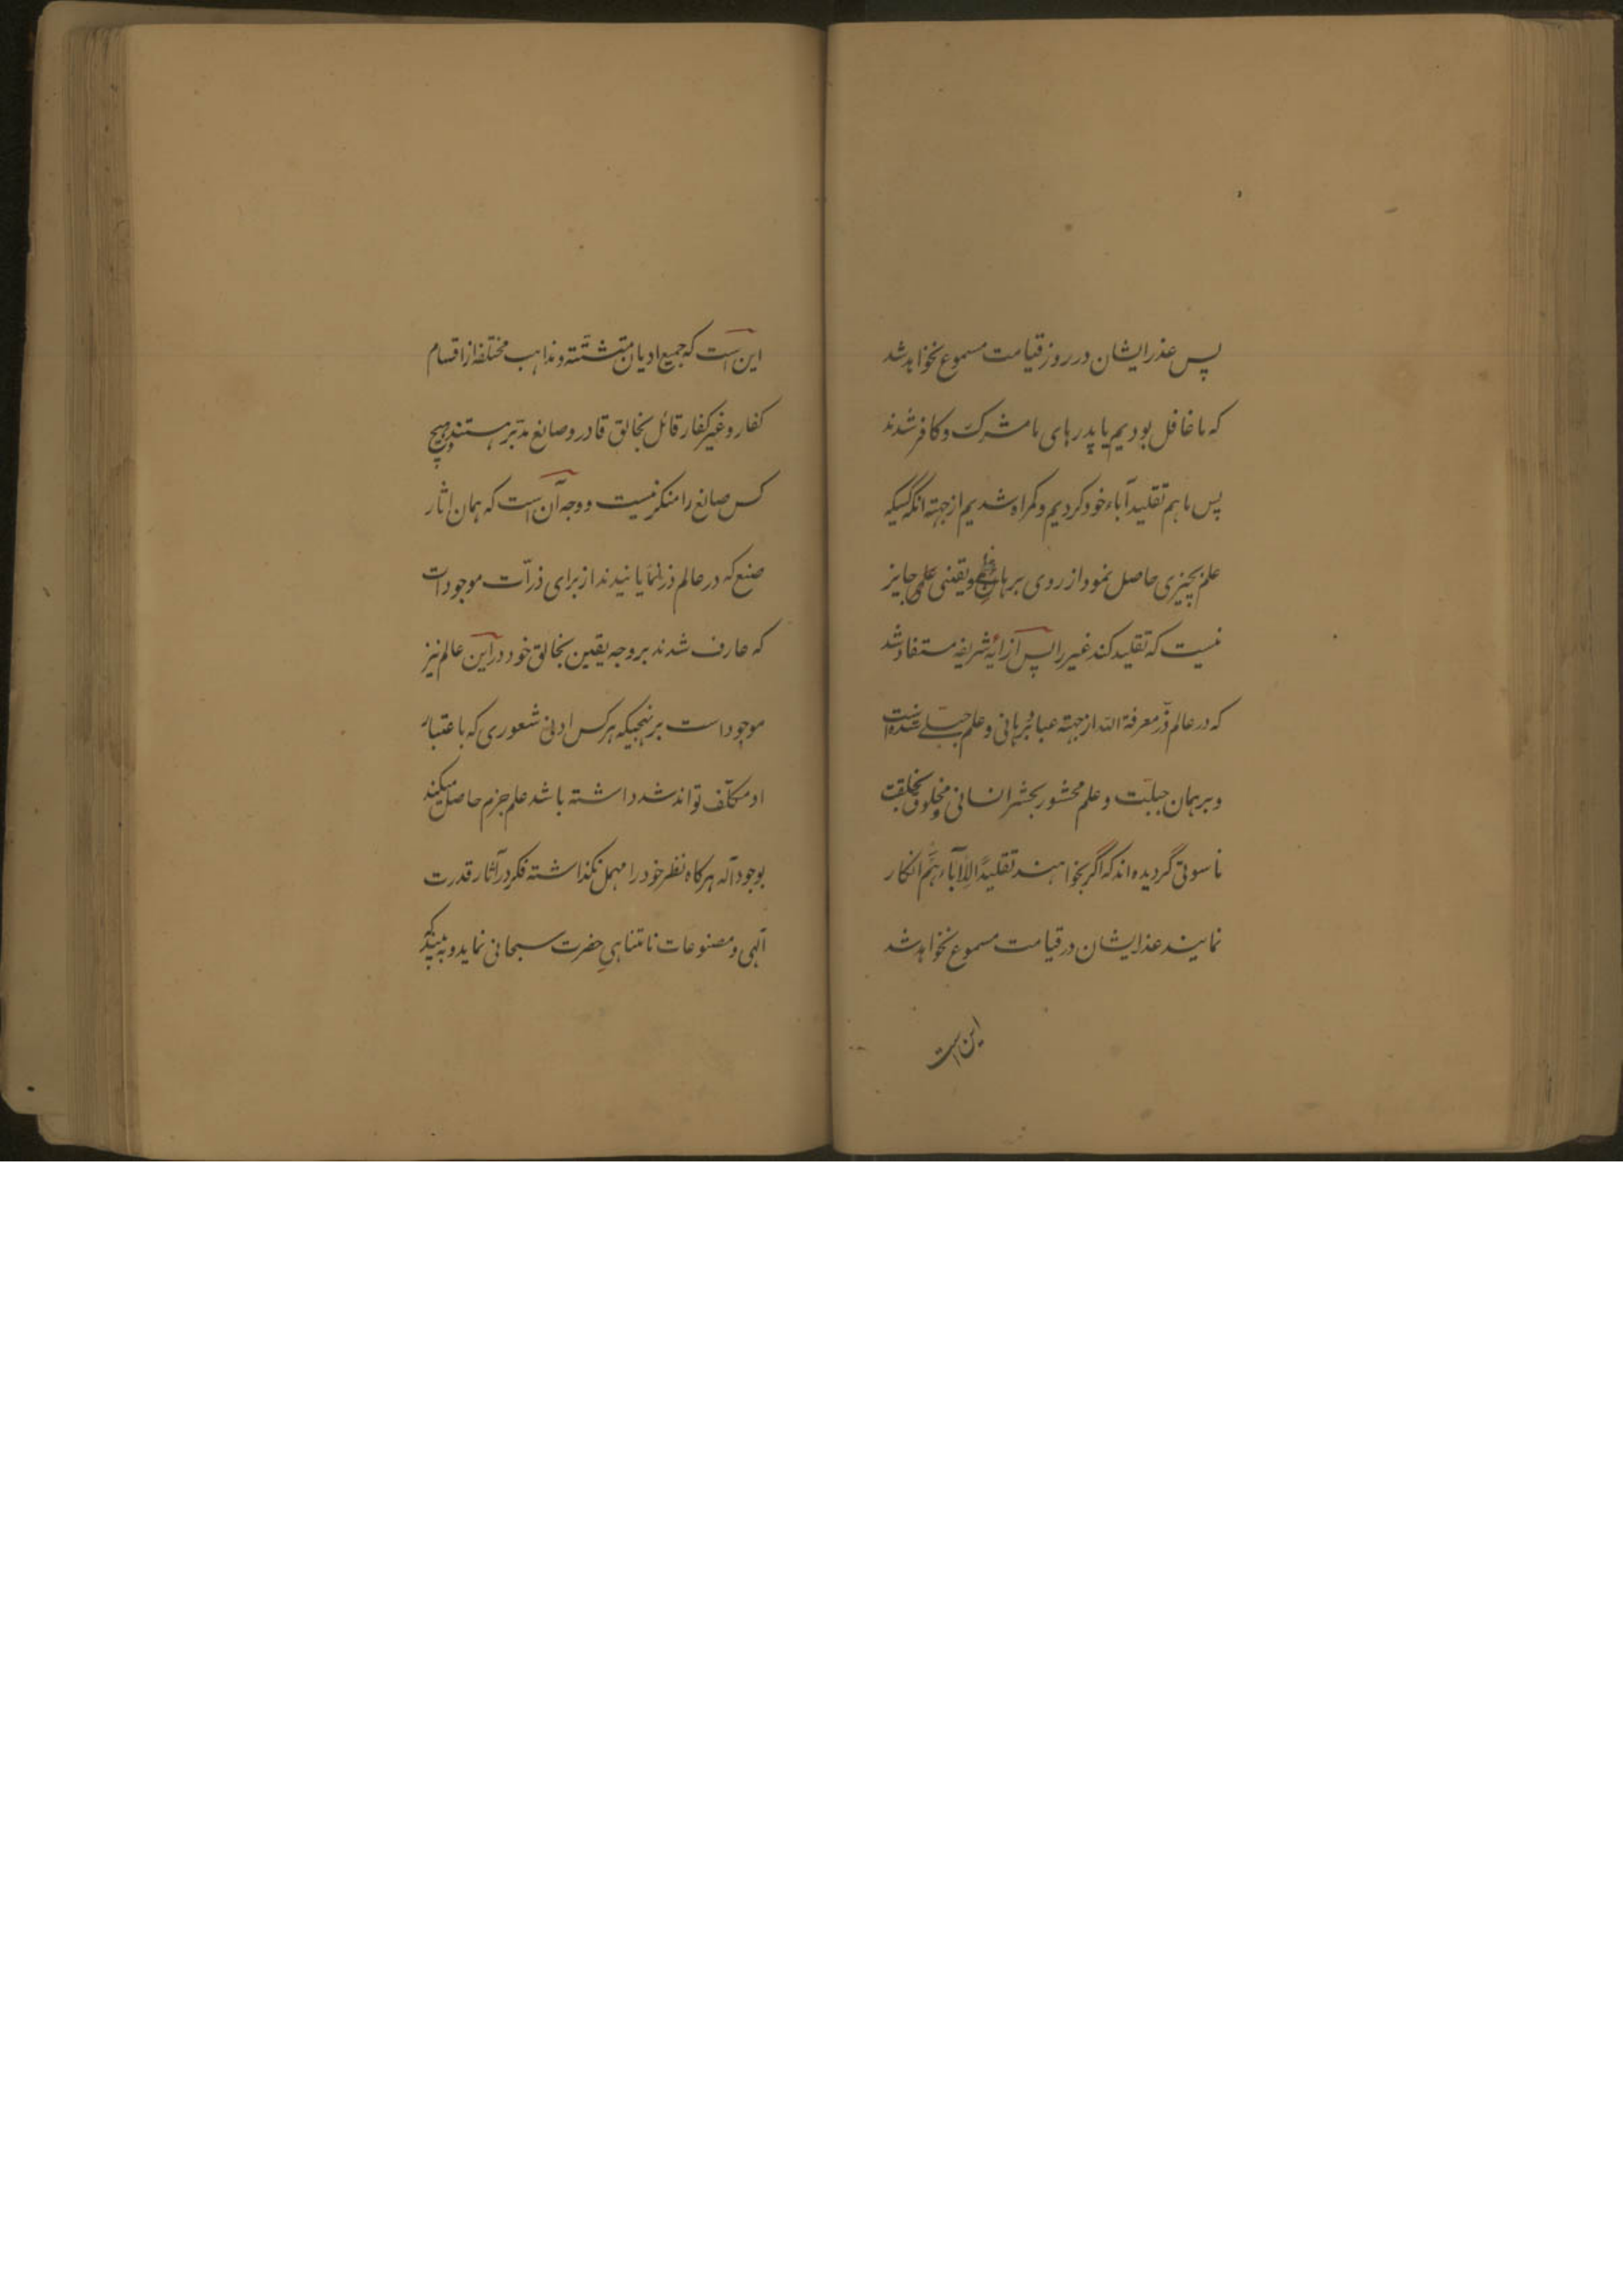 پس عذر ایشان در روز قیامت مسموع نخواهد شد
که ما غافل بودیم یا پدرهای ما مشرک و کافر شدند
پس ما هم تقلید آباء خود کردیم و کمراه شدیم از جهته انکه کسیکه
علم بچیزی حاصل نمود از روی برهان و یقینی علمی جایز
نیست که تقلید کند غیر را پس از ایه شریفه مستفاد شد
که در عالم ذرّ معرفة الله از جهته عباد برهانی و علم جبلّے شده است
و برهان جبلّت و علم محشور بحشر انسانی و مخلوق بخلقت
ناسوتی گردیده اند که اگر بخواهند تقلیدًا لِاٰبآءِهِم انکار
نمایند عذر ایشان در قیامت مسموع نخواهد شد
این است
این است که جمیع ادیان متشتّته و مذاهب مختلفه از اقسام
کفار و غیر کفار قائل بخالق قادر و صانع مدبّر هستند و هیچ
کس صانع را منکر نیست و وجه آن است که همان اثار
صنع که در عالم ذر نمایانیدند از برای ذرّات موجودات
که عارف شدند بر وجه یقین بخالق خود در این عالم نیز
موجود است بر نهجیکه هر کس ادنی شعوری که باعتبار
او مکلّف تواند شد داشته باشد علم جزم حاصل میکند
بوجود آله هرکاه نظر خود را مهمل نکذاشته فکر در آثار قدرت
آلهی و مصنوعات نامتناهیِ حضرت سبحانی نماید و به بیند که